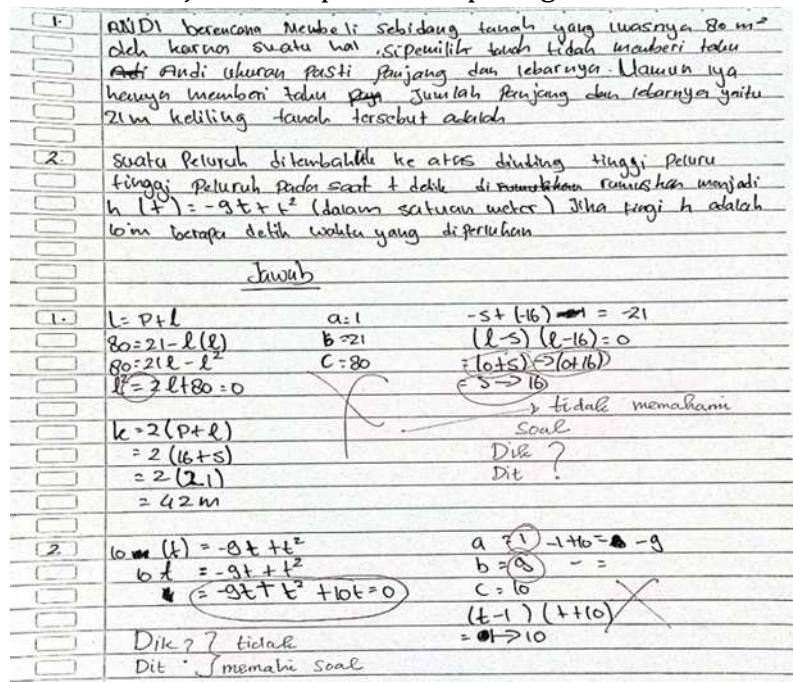 1. ANDI berencana Membeli sebidang tanah yang luasnya 80 m²
oleh karna suatu hal, sipemilik tanah tidak memberi tahu
Andi ukuran pasti panjang dan lebarnya. Namun iya
hanya memberi tahu Jumlah panjang dan lebarnya yaitu
21 m keliling tanah tersebut adalah
2. suatu Peluruh ditembakkan ke atas dinding tinggi peluru
tinggi Peluruh pada saat t detik di rumuskan menjadi
h (t) = -9t + t² (dalam satuan meter) Jika tinggi h adalah
10 m berapa detik waktu yang diperlukan
Jawab
1. L = P+l a = 1 -5 + (-16) = -21
80 = 21 - l (l) b = 21 (l-5) (l-16) = 0
80 = 21l - l² C = 80 = (0+5) -> (0+16)
l² = 2l+80 = 0 = 5 -> 16
tidak memahami
k = 2(P+l) soal
= 2 (16+5) Dik ?
= 2 (21) Dit
= 42 m
2. 10 (t) = -9t + t² a = 1 -1+10 = -9
10 t = -9t + t² b = 9 - =
= -9t + t² + 10t = 0 C = 10
(t-1) (t+10)
= 1 -> 10
Dik ? ? tidak
Dit soal